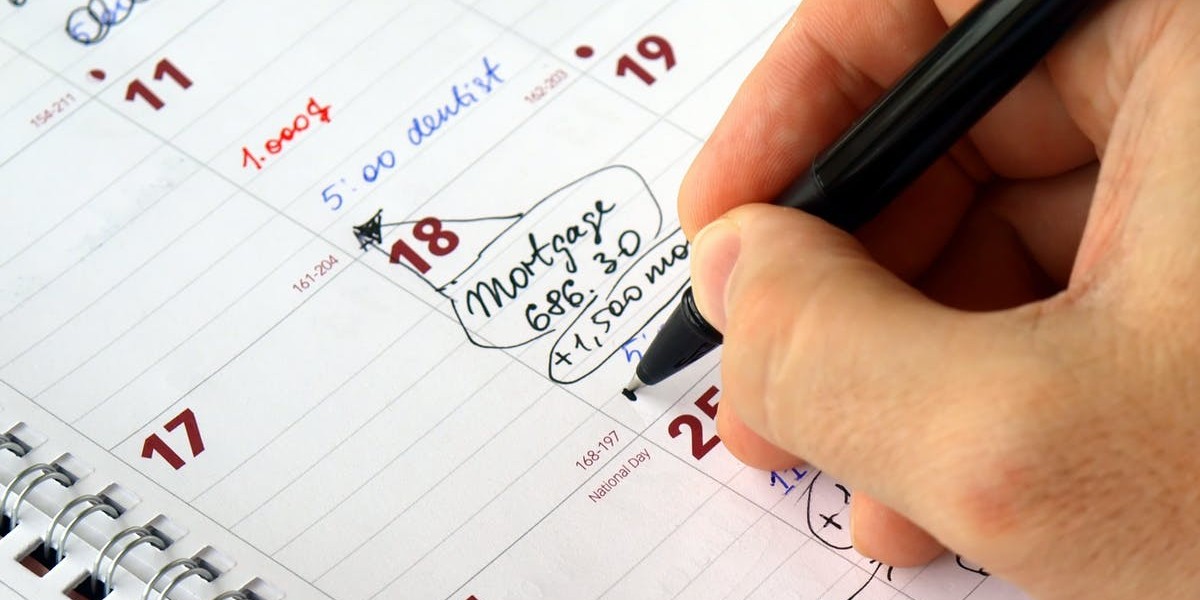 11
154-211
1.000$
5:00 dentist
162-203
19
18
161-204
Mortgage
686.30
+1,500 mo
5:
17
168-197
National Day
25
11